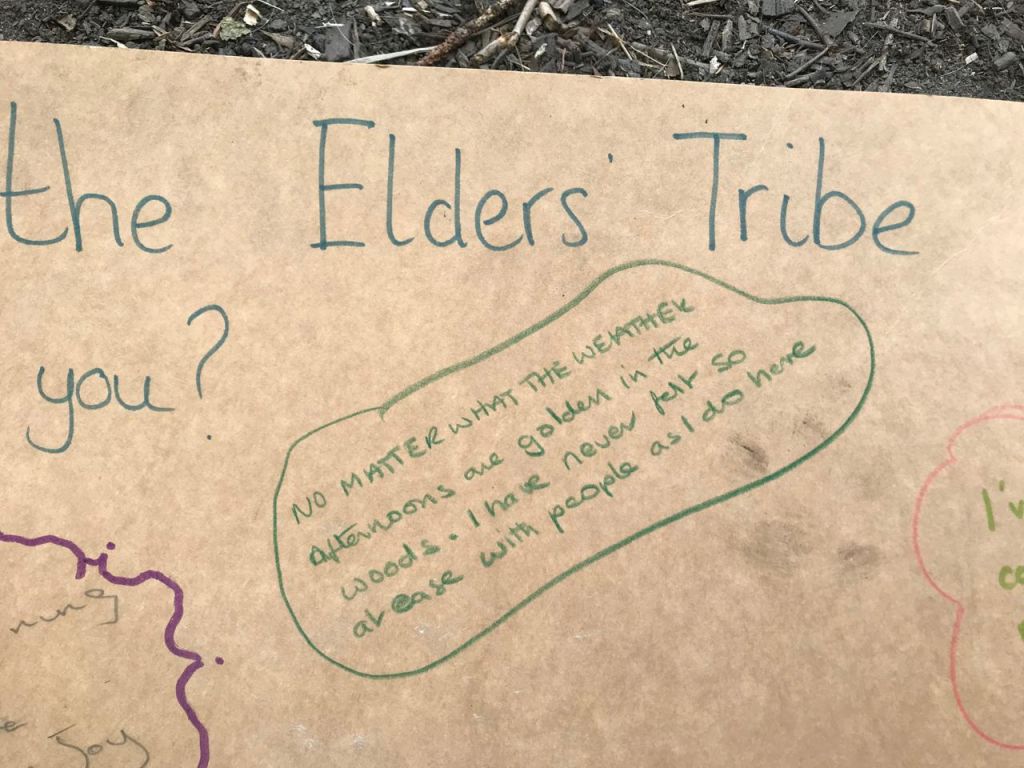 the Elders' Tribe
you?
NO MATTER WHAT THE WEATHER
Afternoons are golden in the
woods. I have never felt so
at ease with people as I do here
I'v
joy